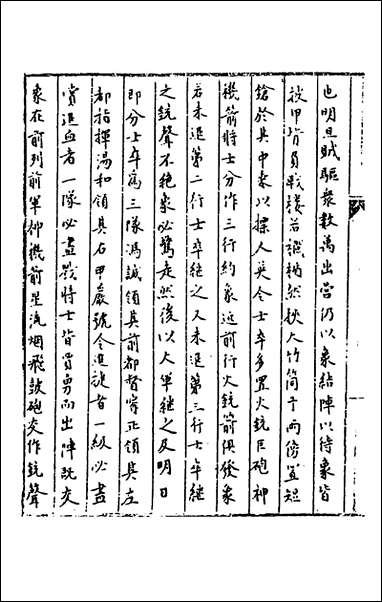 也明旦賊驅衆數萬出营仍以象結陣以待象皆
被甲背負戰楼若襴楯然挾大竹筒于両傍置短
鎗於其中來以探人英令士卒多置火銃巨砲神
機箭將士分作三行約象近前行火銃箭俱發象
若未退第二行士卒継之又未退第三行士卒継
之銃聲不絶象必驚走然後以大軍継之及明日
即分士卒爲三隊馮誠領其前都督甯正領其左
都指揮湯和領其右申嚴號令進旋者一級必盡
賞退血者一隊必盡戮將士皆買勇而出陣旣交
象在前列前軍神機前星流烟飛鼓砲交作銃聲